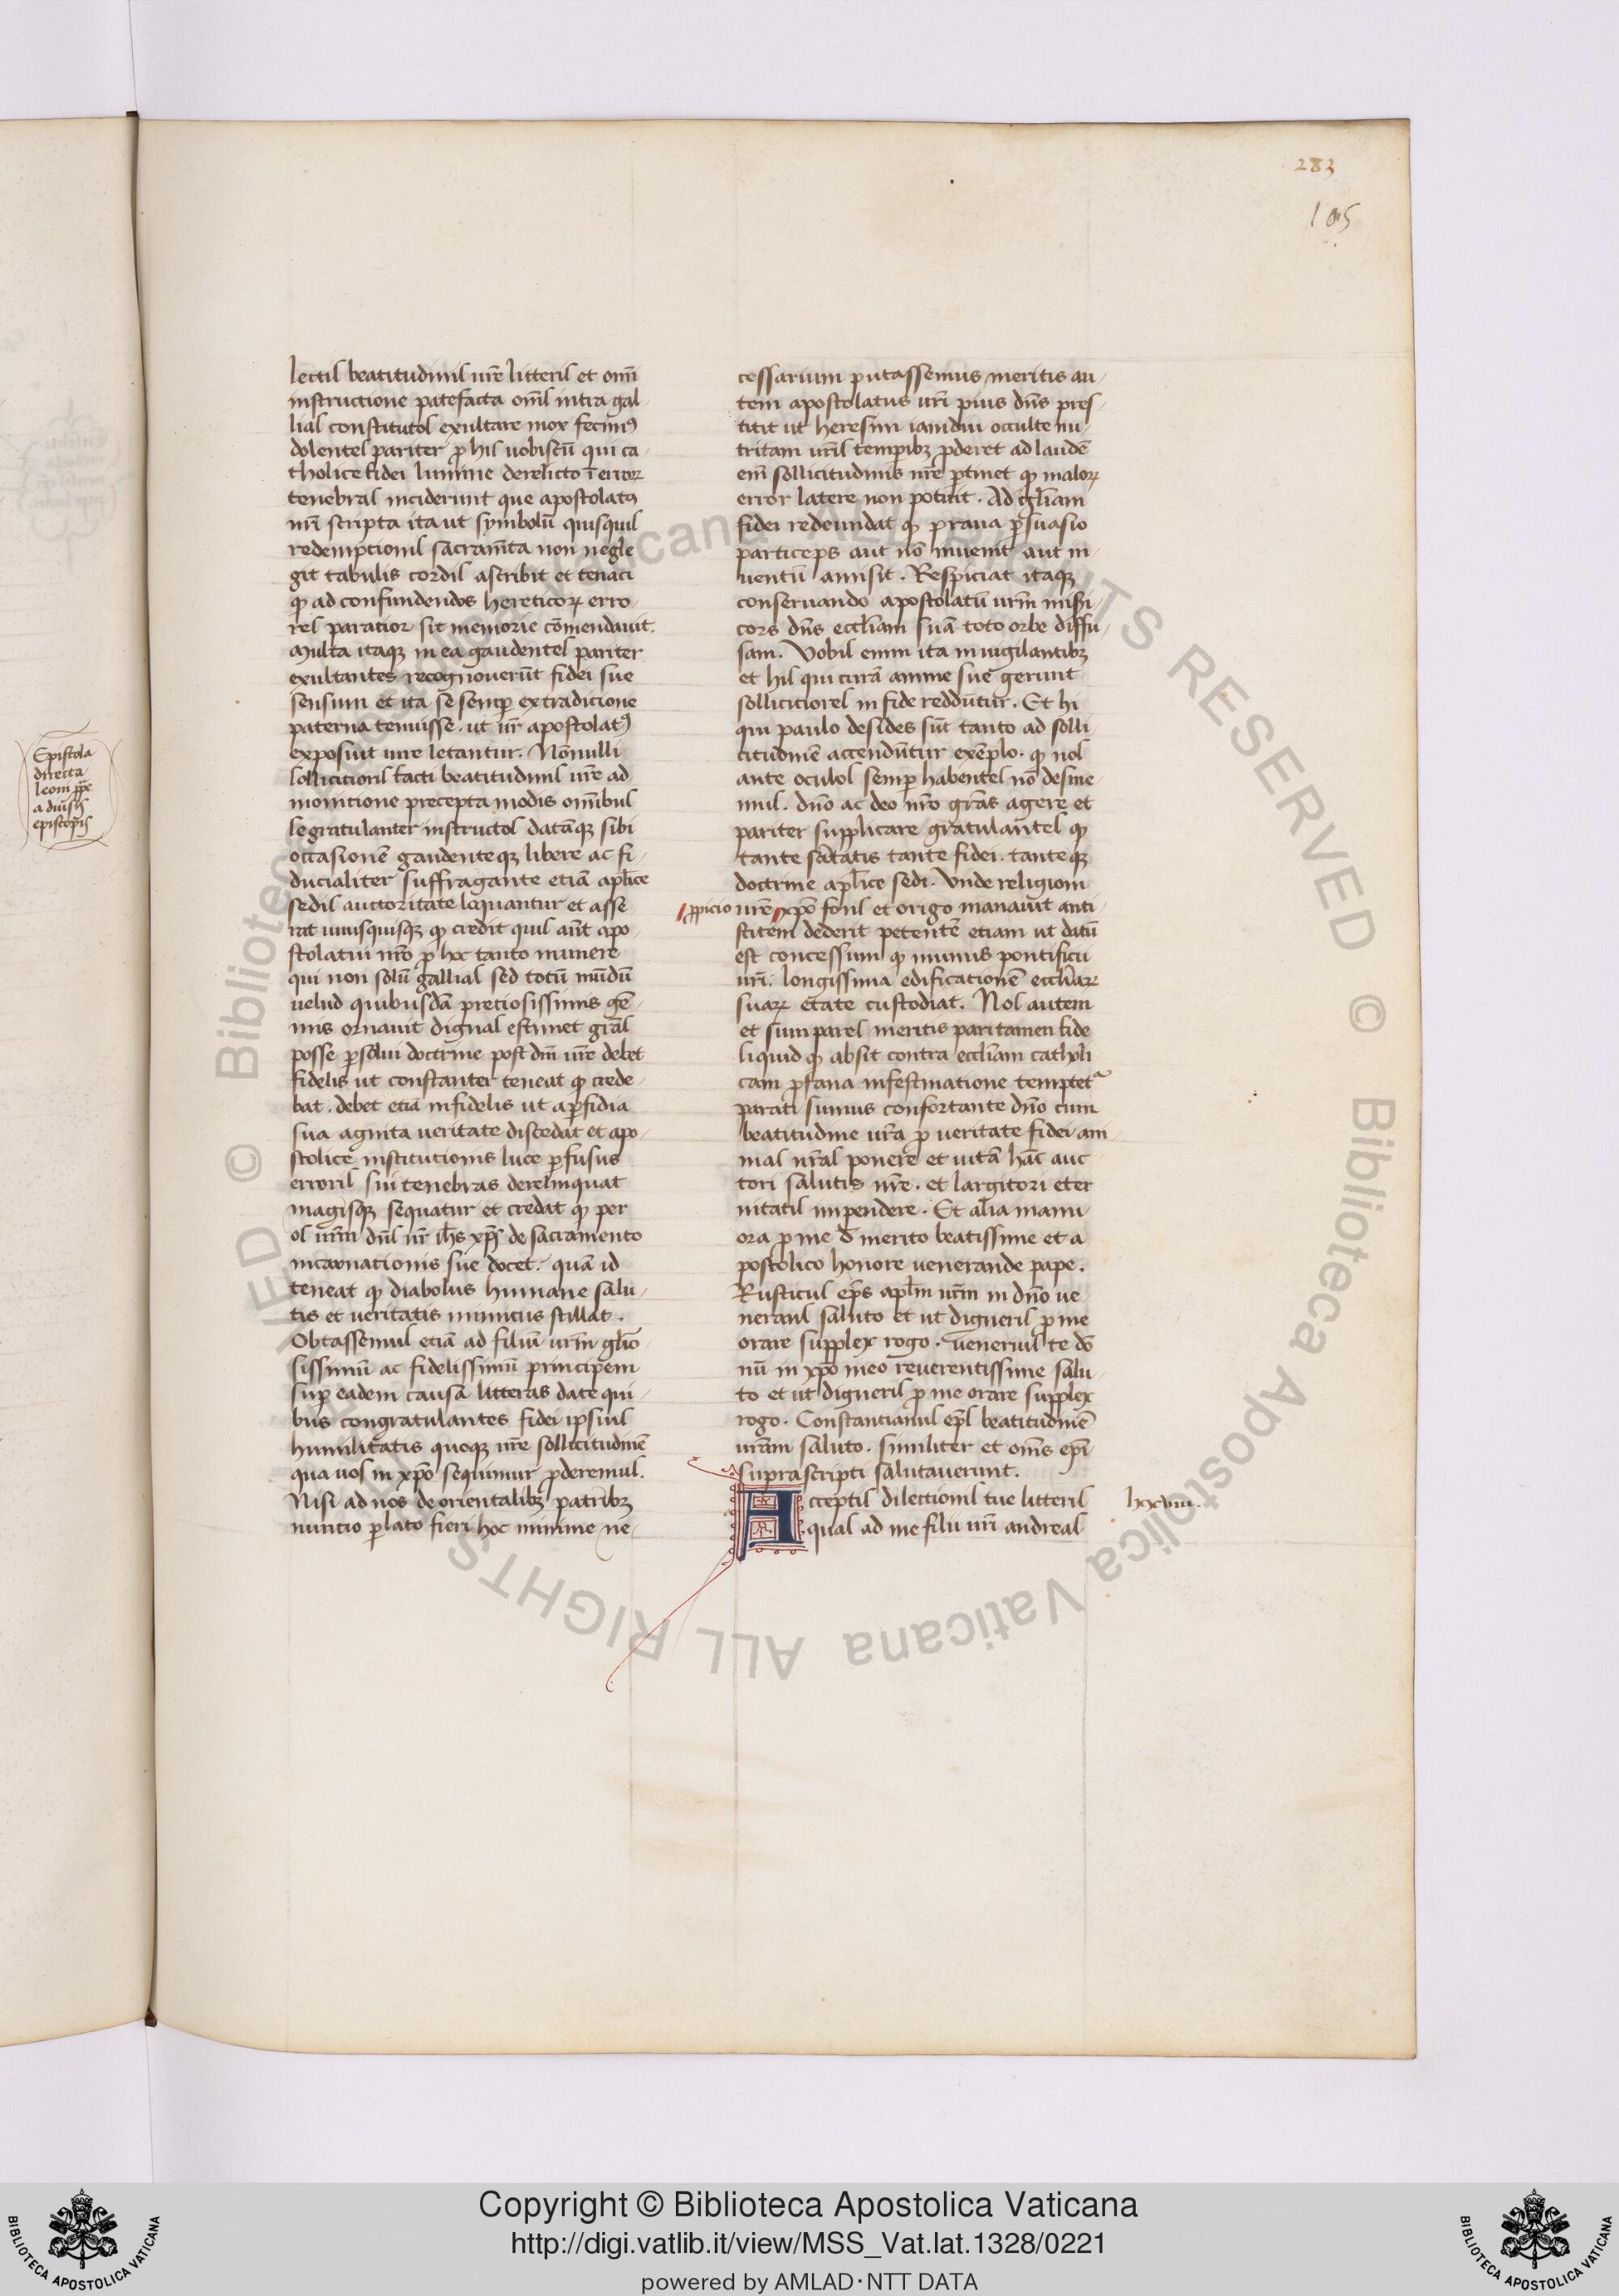 283
105
Epistola
directa
leoni pp̄e
a diu̅sis
episcopis
lectis beatitudinis ur̄e litteris et om̅i
instructione patefacta om̅s intra gal-
lias constitutos exultare mox fecimꝰ
dolentes pariter ꝓ his uobiscū qui ca-
tholice fidei lumine derelicto ī erroꝝ
tenebras inciderunt que apostolatꝰ
ur̄i scripta ita ut symbolū quisquis
redemptionis sacram̄ta non negle
git tabulis cordis ascribit et tenaci
ꝙ ad confundendos hereticoꝝ erro
res paratior sit memorie cōmendauit.
Multa itaqꝫ in ea gaudentes pariter
exultantes recognouerūt fidei sue
sensum et ita se semꝑ ex tradicione
paterna tenuisse. ut ur̄ apostolatꝰ
exposuit iure letantur. Nōnulli
sollicitioris facti beatitudinis ur̄e ad
monitione precepta modis om̅ibus
se gratulanter instructos datāqꝫ sibi
occasionē gaudenteqꝫ libere ac fi-
ducialiter suffragante etiā apl̄ice
sedis auctoritate loquantur et asse
rat unusquisqꝫ ꝙ credit quis aūt apo-
stolatui ur̄o ꝓ hoc tanto munere
qui non solū gallias sed totū mūdū
uelud quibusdā preciosissimis gē-
mis ornauit dignas estimet grās
posse ꝑsolui doctrine post dm̄ ur̄e debet
fidelis ut constanter teneat ꝙ crede-
bat. debet etiā infidelis ut a ꝑfidia
sua agnita ueritate discedat et apo-
stolice institutionis luce ꝑfusus
erroris sui tenebras derelinquat
magisqꝫ sequatur et credat ꝙ per
os ur̄m dn̄s nr̄ ih̄s xp̄s de sacramento
incarnationis sue docet. quā id
teneat ꝙ diabolus humane salu-
tis et ueritatis inimicus stillat.
Obtassemus etiā ad filiū ur̄m gl̄io
sissimū ac fidelissimū principem
suꝑ eadem causa litteras date qui-
bus congratulantes fidei ipsius
humilitatis quoqꝫ ur̄e sollicitudinē
qua uos in xp̄o sequimur ꝓderemus.
Nisi ad nos de orientalibꝫ patribꝫ
nuncio ꝑlato fieri hoc minime ne-
cessarium putassemus meritis au-
tem apostolatus ur̄i pius dn̄s pres-
titit ut heresim iamdiu occulte nu-
tritam ur̄is temporibꝫ ꝓderet ad laudē
em̄ sollicitudinis ur̄e ꝑtinet ꝙ maloꝝ
error latere non potuit. Ad gl̄iam
fidei redundat ꝙ praua ꝑsuasio
particeps aut nō inuenit aut in-
uentū amisit. Respiciat itaqꝫ
conseruando apostolatū ur̄m misi-
cors dn̄s eccl̄iam suā toto orbe diffu-
sam. Vobis enim ita inuigilantibꝫ
et his qui curā anime sue gerunt
sollicitiores in fide reddūtur. Et hi
qui paulo desides sūt tanto ad solli
citudinē accendūtur exēplo. ꝙ nos
ante oculos semꝑ habentes nō desine
mus. dn̄o ac deo nr̄o grās agere et
pariter supplicare gratulantes ꝙ
tante sāctatis tante fidei. tanteqꝫ
doctrine apl̄ice sedi. Vnde religioni
ꝓpicio
ur̄e xp̄o fons et origo manauit anti-
stitem dederit petentē etiam ut datū
est concessum ꝙ munus pontificii
ur̄i. longissima edificationē eccl̄iaꝝ
suaꝝ etate custodiat. Nos autem
et sum pares meritis pari tamen fide
si quid ꝙ absit contra eccl̄iam catholi
cam ꝓfana infestinatione temptet
parati sumus confortante dn̄o cum
beatitudine ur̄a ꝓ ueritate fidei ani
mas nr̄as ponere et uitā hāc auc
tori salutis nr̄e. et largitori eter
nitatis impendere. Et alia manu
ora ꝓ me d̄ merito beatissime et a
postolico honore uenerande pape.
Rusticus ep̄s apl̄m ur̄m in dn̄o ue
nerans saluto et ut digneris ꝓ me
orare supplex rogo. uenerius te dō
nū in xp̄o meo reuerentissime salu-
to et ut digneris ꝓ me orare supplex
rogo. Constantianus ep̄s beatitudinē
ur̄am saluto. similiter et om̅s ep̄i
suprascripti salutauerunt.
Acceptis dilectionis tue litteris
quas ad me filii ur̄i andreas
lxxviii.
Copyright © Biblioteca Apostolica Vaticana
http://digi.vatlib.it/view/MSS_Vat.lat.1328/0221
powered by AMLAD·NTT DATA
BIBLIOTECA APOSTOLICA VATICANA
BIBLIOTECA APOSTOLICA VATICANA
© Biblioteca Apostolica Vaticana ALL RIGHTS RESERVED